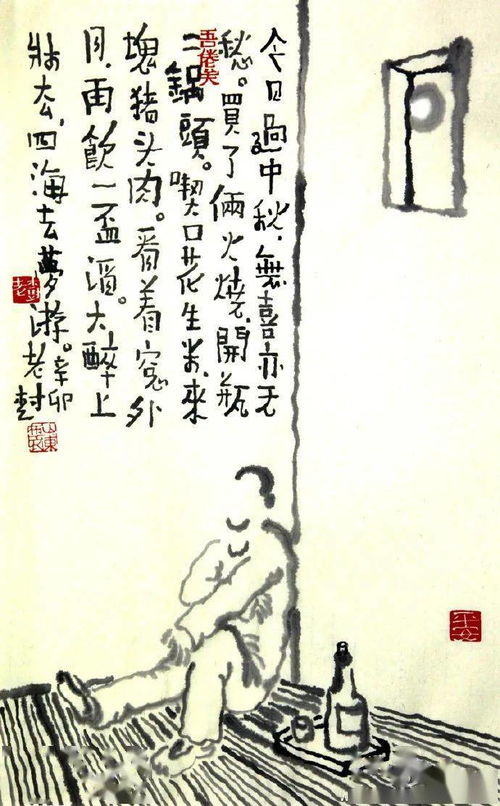 今日過中秋，無喜亦无
愁。買了倆火燒，開瓶
二鍋頭。喫口花生米，來
塊猪头肉。看着窓外
月，再飲一盃酒。大醉上
牀去，四海去夢游。辛卯
老树
吾倦矣